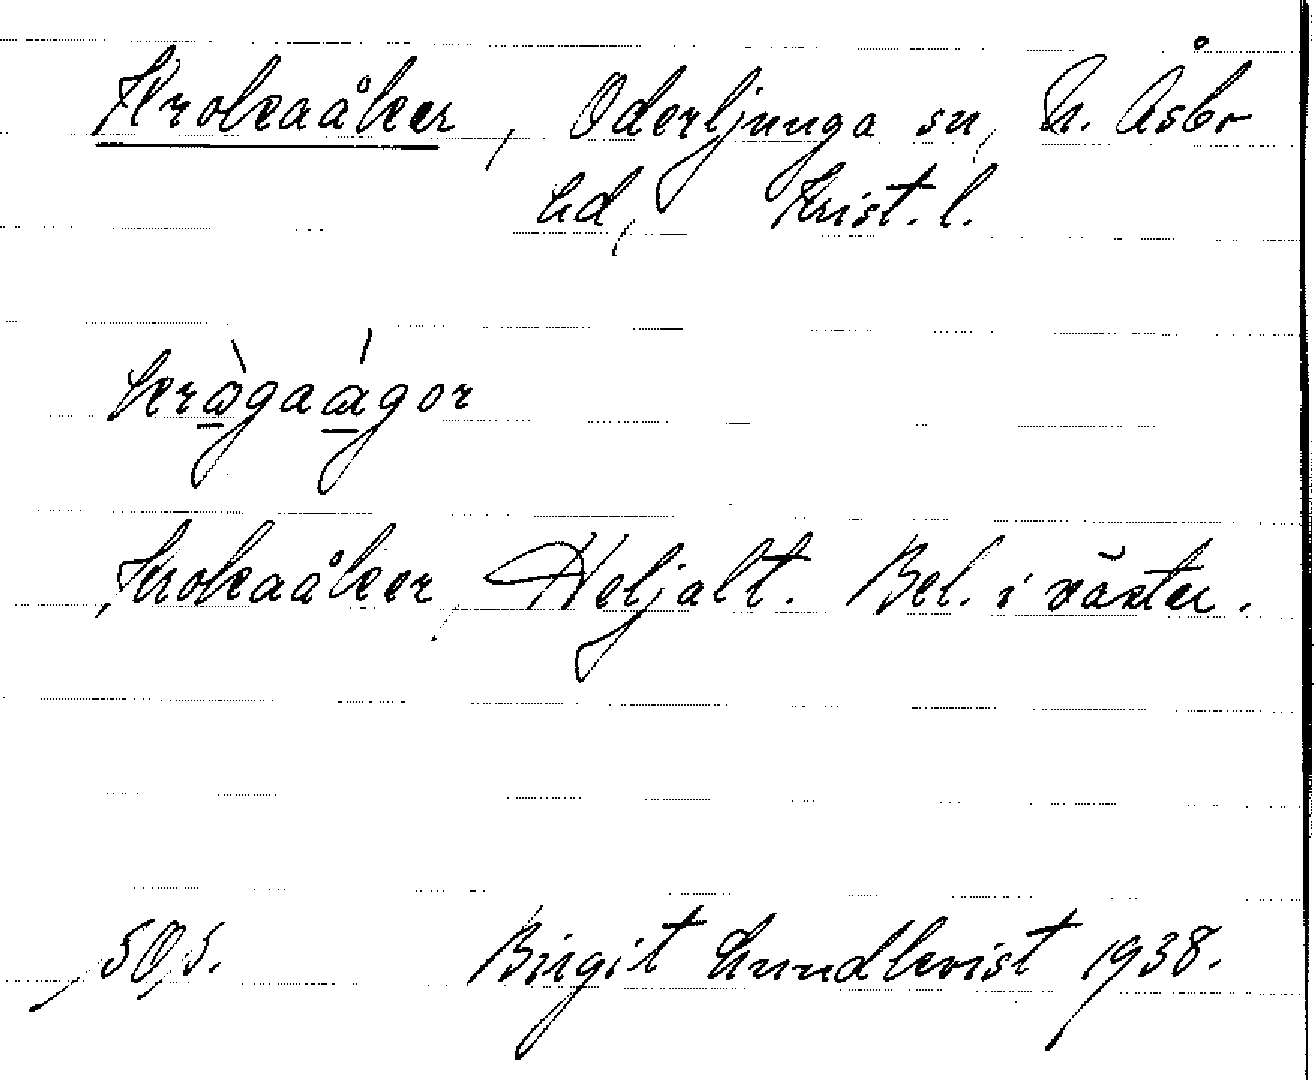 Krokaåker, Oderljunga sn, N. Åsbo
hd, Krist. l.
kràgaágor
Krokaåker, Heljalt. Bel. i väster.
SOS. Birgit Lundkvist 1938.